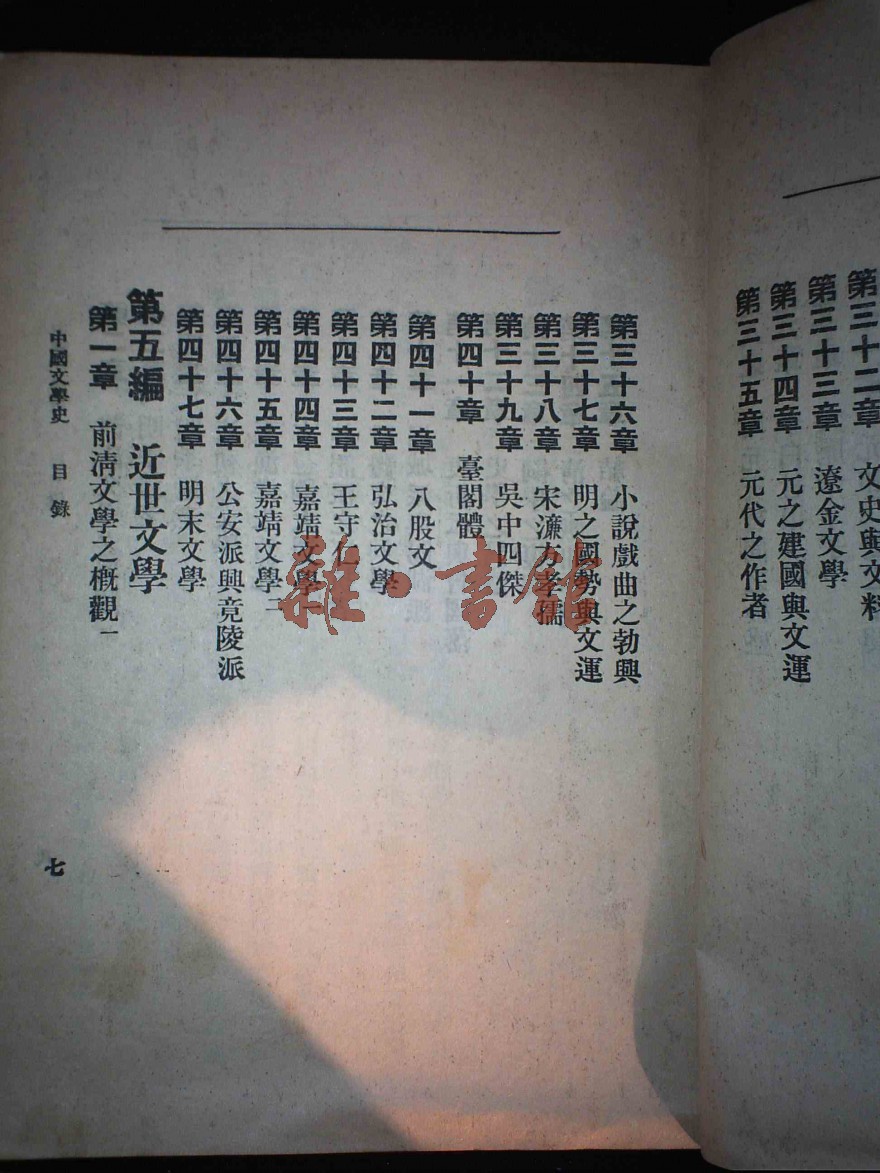 第三十二章 文史與文料
第三十三章 遼金文學
第三十四章 元之建國與文運
第三十五章 元代之作者
第三十六章 小說戲曲之勃興
第三十七章 明之國勢與文運
第三十八章 宋濂方孝孺
第三十九章 吳中四傑
第四十章 臺閣體
第四十一章 八股文
第四十二章 弘治文學
第四十三章 王守仁
第四十四章 嘉靖文學一
第四十五章 嘉靖文學二
第四十六章 公安派與竟陵派
第四十七章 明末文學
第五編 近世文學
第一章 前淸文學之槪觀一
中國文學史 目錄
七
雜·書館